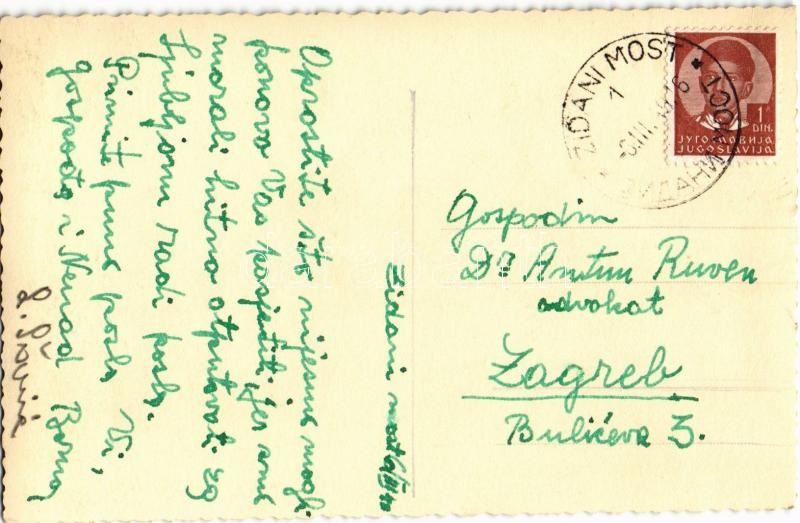 Oprostite što nijesmo mogli
ponovo Vas posjetiti, jer smo
morali hitno otputovati za
Ljubljanu radi posla.
Primite puno pozdr. Vi,
gospođa i Nenad
Zidani most 6/III 40
ZIDANI MOST
1
ЗИДАНИ МОСТ
1 DIN.
ЈУГОСЛАВИЈА
JUGOSLAVIJA
Gospodin
Dr Antun Ruven
advokat
Zagreb
Bulićeva 3.